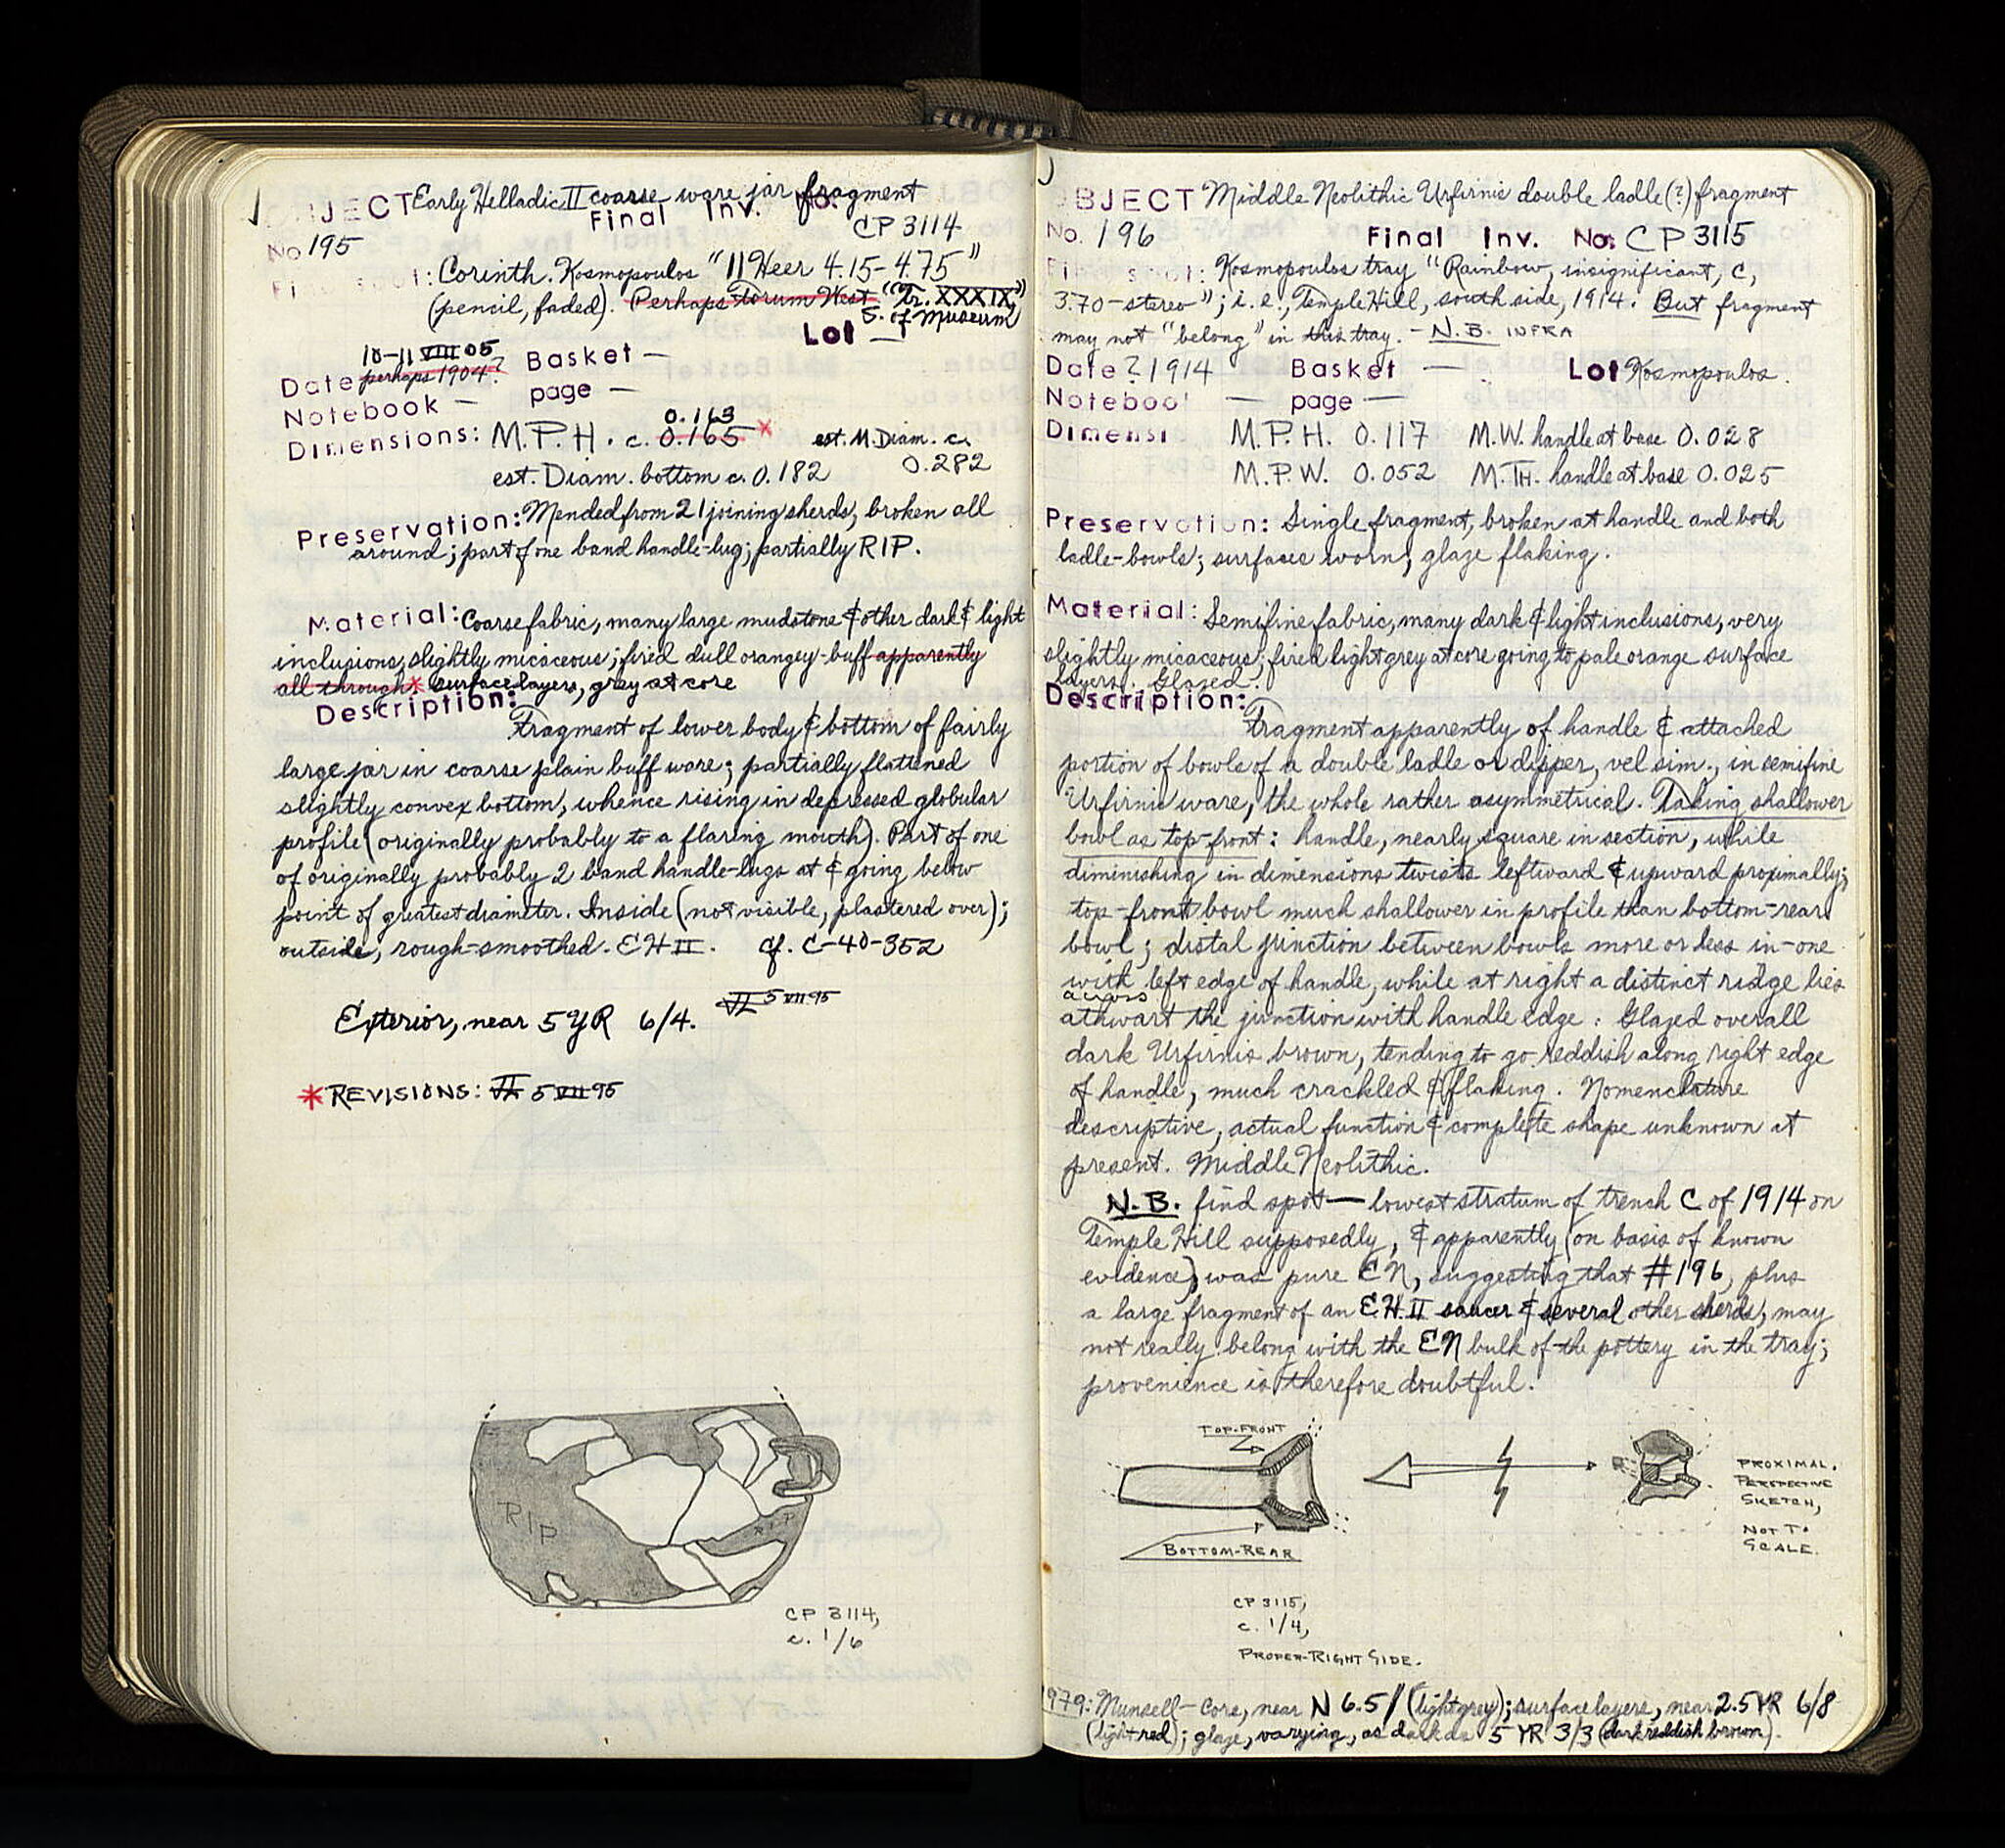 OBJECT Early Helladic II coarse ware jar fragment
Final Inv. No.
CP 3114
No 195
Fi spot: Corinth. Kosmopoulos "11 Heer 4.15-4.75"
(pencil, faded). Perhaps Forum West "Tr. XXXIX,"
S. of Museum
Lot —
10-11 VIII 05
Date perhaps 1904? Basket —
Notebook — page —
0.163
Dimensions: M.P.H. c. 0.165 * est. M. Diam. c.
0.282
est. Diam. bottom c. 0.182
Preservation: Mended from 21 joining sherds, broken all
around; part of one band handle-lug; partially RIP.
Material: Coarse fabric, many large mudstone & other dark & light
inclusions, slightly micaceous; fired dull orangey-buff apparently
all through * surface layers, grey at core
Description:
Fragment of lower body & bottom of fairly
large jar in coarse plain buff ware; partially flattened
slightly convex bottom, whence rising in depressed globular
profile (originally probably to a flaring mouth). Part of one
of originally probably 2 band handle-lugs at & going below
point of greatest diameter. Inside (not visible, plastered over);
outside, rough-smoothed. EH II. cf. C-40-352
Exterior, near 5 YR 6/4. 5 VII 95
* REVISIONS: 5 VII 95
RIP
RIP
CP 3114,
c. 1/6
OBJECT Middle Neolithic Urfirnis double ladle (?) fragment
No. 196 Final Inv. No: CP 3115
Fi spot: Kosmopoulos tray "Rainbow, insignificant, C,
3.70-stereo"; i.e., Temple Hill, south side, 1914. But fragment
may not "belong" in this tray. - N.B. INFRA
Date ? 1914 Basket — Lot Kosmopoulos.
Notebook — page —
Dimensi M.P.H. 0.117 M.W. handle at base 0.028
M.P.W. 0.052 M.TH. handle at base 0.025
Preservation: Single fragment, broken at handle and both
ladle-bowls; surfaces worn, glaze flaking.
Material: Semifine fabric, many dark & light inclusions, very
slightly micaceous; fired light grey at core going to pale orange surface
layers. Glazed.
Description:
Fragment apparently of handle & attached
portion of bowls of a double ladle or dipper, vel sim., in semifine
Urfirnis ware, the whole rather asymmetrical. Taking shallower
bowl as top-front: handle, nearly square in section, while
diminishing in dimensions twists leftward & upward proximally;
top-front bowl much shallower in profile than bottom-rear
bowl; distal junction between bowls more or less in-one
with left edge of handle, while at right a distinct ridge lies
across
athwart the junction with handle edge. Glazed overall
dark Urfirnis brown, tending to go reddish along right edge
of handle, much crackled & flaking. Nomenclature
descriptive, actual function & complete shape unknown at
present. Middle Neolithic.
N.B. find spot — lowest stratum of trench C of 1914 on
Temple Hill supposedly, & apparently (on basis of known
evidence) was pure EN, suggesting that #196, plus
a large fragment of an E.H. II saucer & several other sherds, may
not really belong with the EN bulk of the pottery in the tray;
provenience is therefore doubtful.
TOP-FRONT
BOTTOM-REAR
PROXIMAL.
PERSPECTIVE
SKETCH,
NOT TO
SCALE.
CP 3115,
c. 1/4,
PROPER-RIGHT SIDE.
1979: Munsell - Core, near N 6.5/ (light grey); surface layers, near 2.5 YR 6/8
(light red); glaze, varying, as dark as 5 YR 3/3 (dark reddish brown).